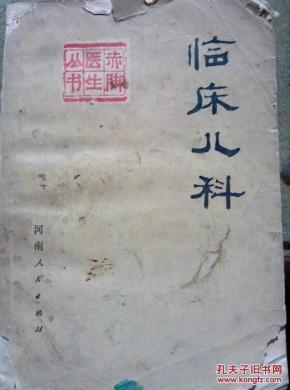 临床儿科
赤脚
医生
丛书
河南人民出版社
孔夫子旧书网